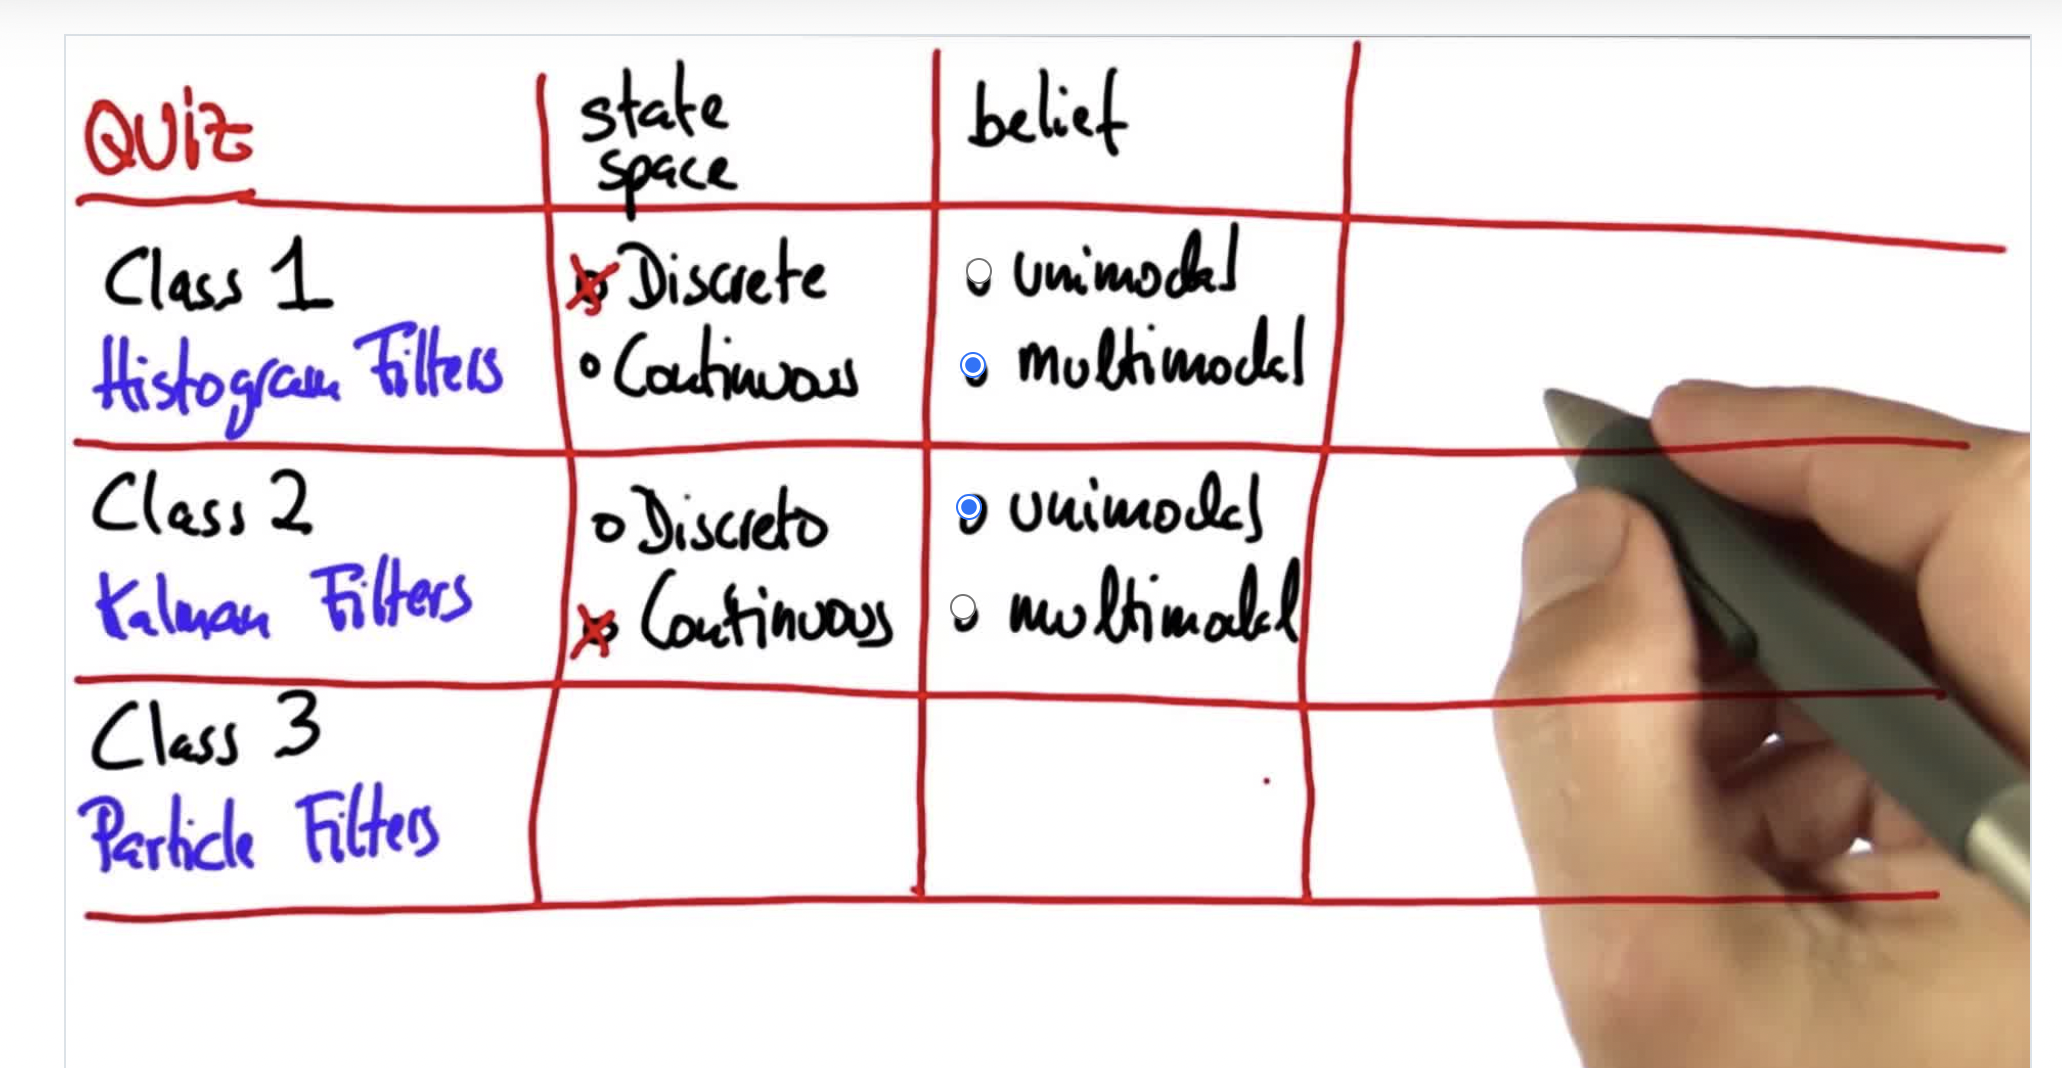 QUIZ
state
space
belief
Class 1
Histogram Filters
Discrete
Continuous
unimodal
multimodal
Class 2
Kalman Filters
Discrete
Continuous
unimodal
multimodal
Class 3
Particle Filters